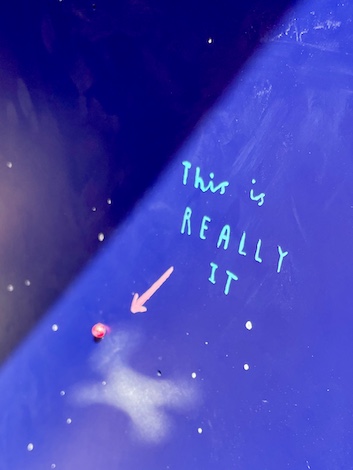 This is
REALLY
IT